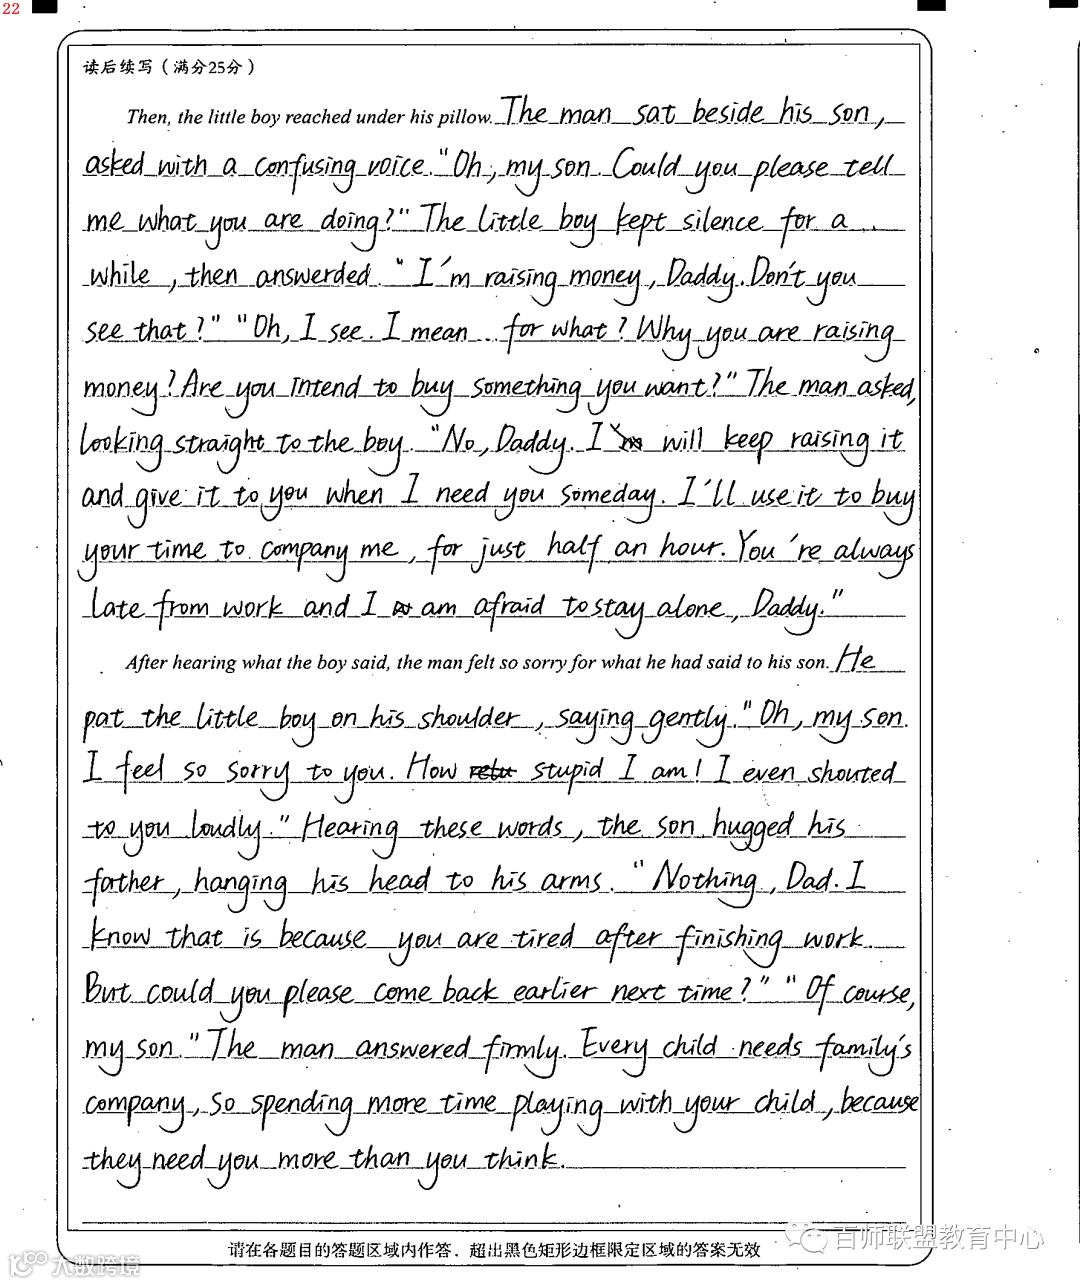 22
读后续写（满分25分）
Then, the little boy reached under his pillow. The man sat beside his son,
asked with a confusing voice. "Oh, my son. Could you please tell
me what you are doing?" The little boy kept silence for a
while, then answerded. "I'm raising money, Daddy. Don't you
see that?" "Oh, I see. I mean... for what? Why you are raising
money? Are you intend to buy something you want?" The man asked,
looking straight to the boy. "No, Daddy. I will keep raising it
and give it to you when I need you someday. I'll use it to buy
your time to company me, for just half an hour. You're always
late from work and I am afraid to stay alone, Daddy."
After hearing what the boy said, the man felt so sorry for what he had said to his son. He
pat the little boy on his shoulder, saying gently. "Oh, my son.
I feel so sorry to you. How stupid I am! I even shouted
to you loudly." Hearing these words, the son hugged his
father, hanging his head to his arms. "Nothing, Dad. I
know that is because you are tired after finishing work.
But could you please come back earlier next time?" "Of course,
my son." The man answered firmly. Every child needs family's
company, so spending more time playing with your child, because
they need you more than you think.
请在各题目的答题区域内作答，超出黑色矩形边框限定区域的答案无效
百师联盟教育中心
大数跨境